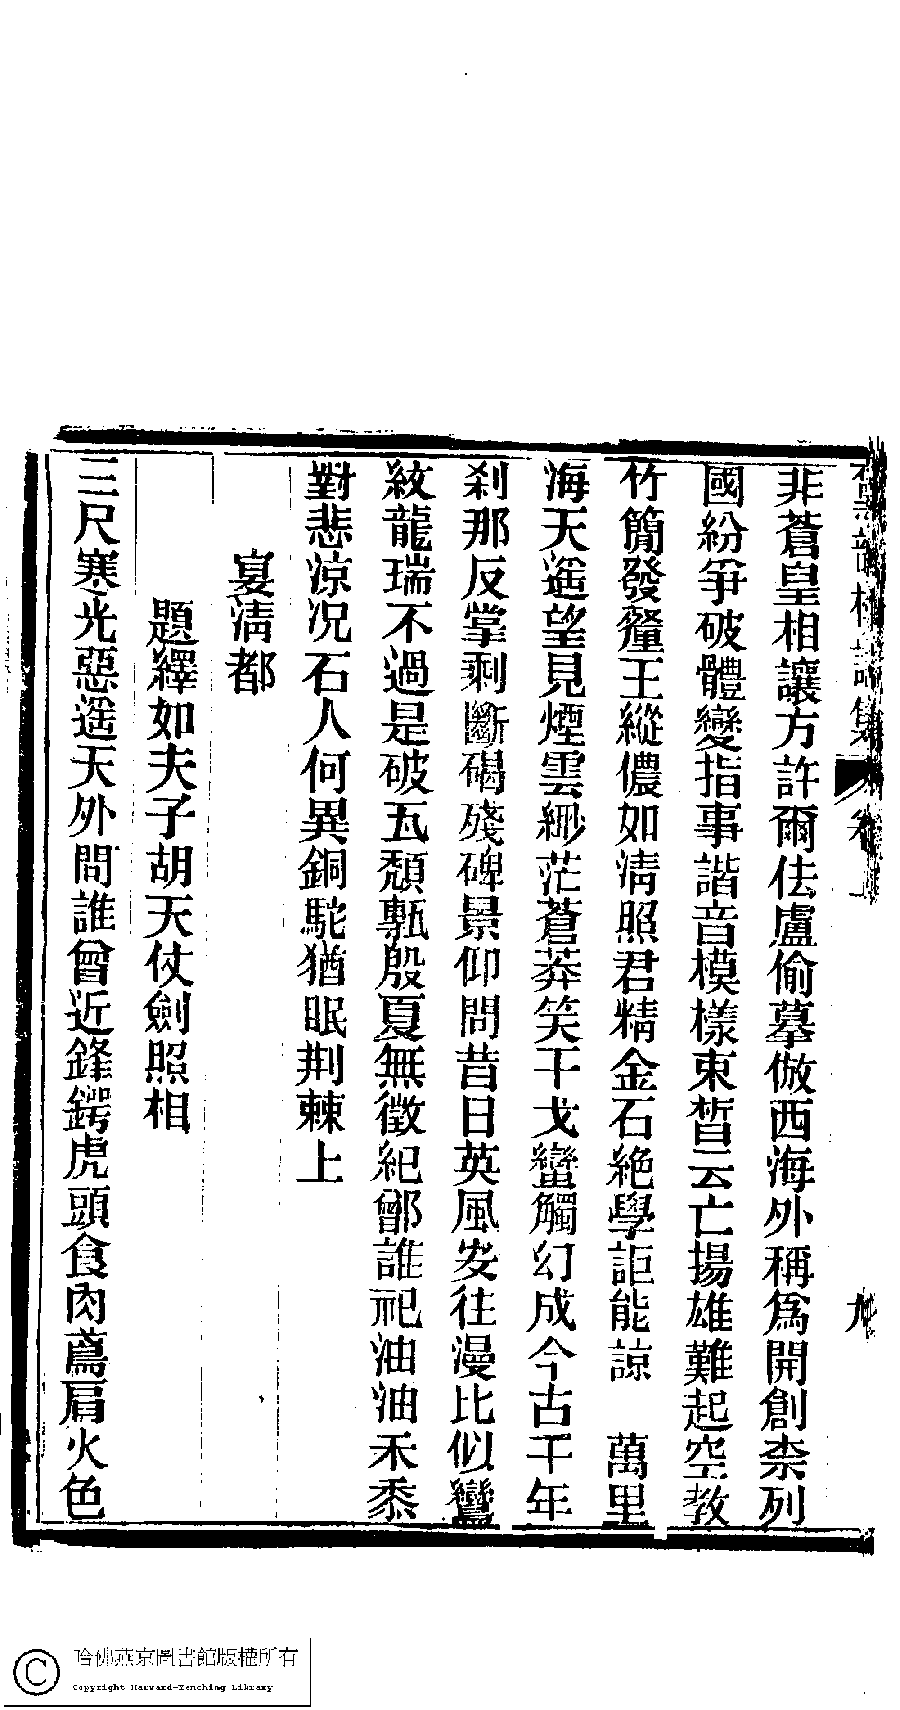 集 卷上 九
非蒼皇相讓方許爾佉盧偷摹倣西海外稱爲開創柰列
國紛爭破體變指事諧音模樣束晳云亡揚雄難起空教
竹簡發釐王縱儂如淸照君精金石絶學詎能諒　萬里
海天遥望見煙雲緲茫蒼莽笑干戈蠻觸幻成今古千年
刹那反掌剩斷碣殘碑景仰問昔日英風安往漫比似鸞
紋龍瑞不過是破瓦頹甎殷夏無徵紀鄫誰祀油油禾黍
對悲涼况石人何異銅駝猶眠荆棘上
宴淸都
題繹如夫子胡天仗劍照相
三尺寒光惡遥天外問誰曾近鋒鍔虎頭食肉鳶肩火色
哈佛燕京圖書館版權所有
Copyright Harvard-Yenching Library